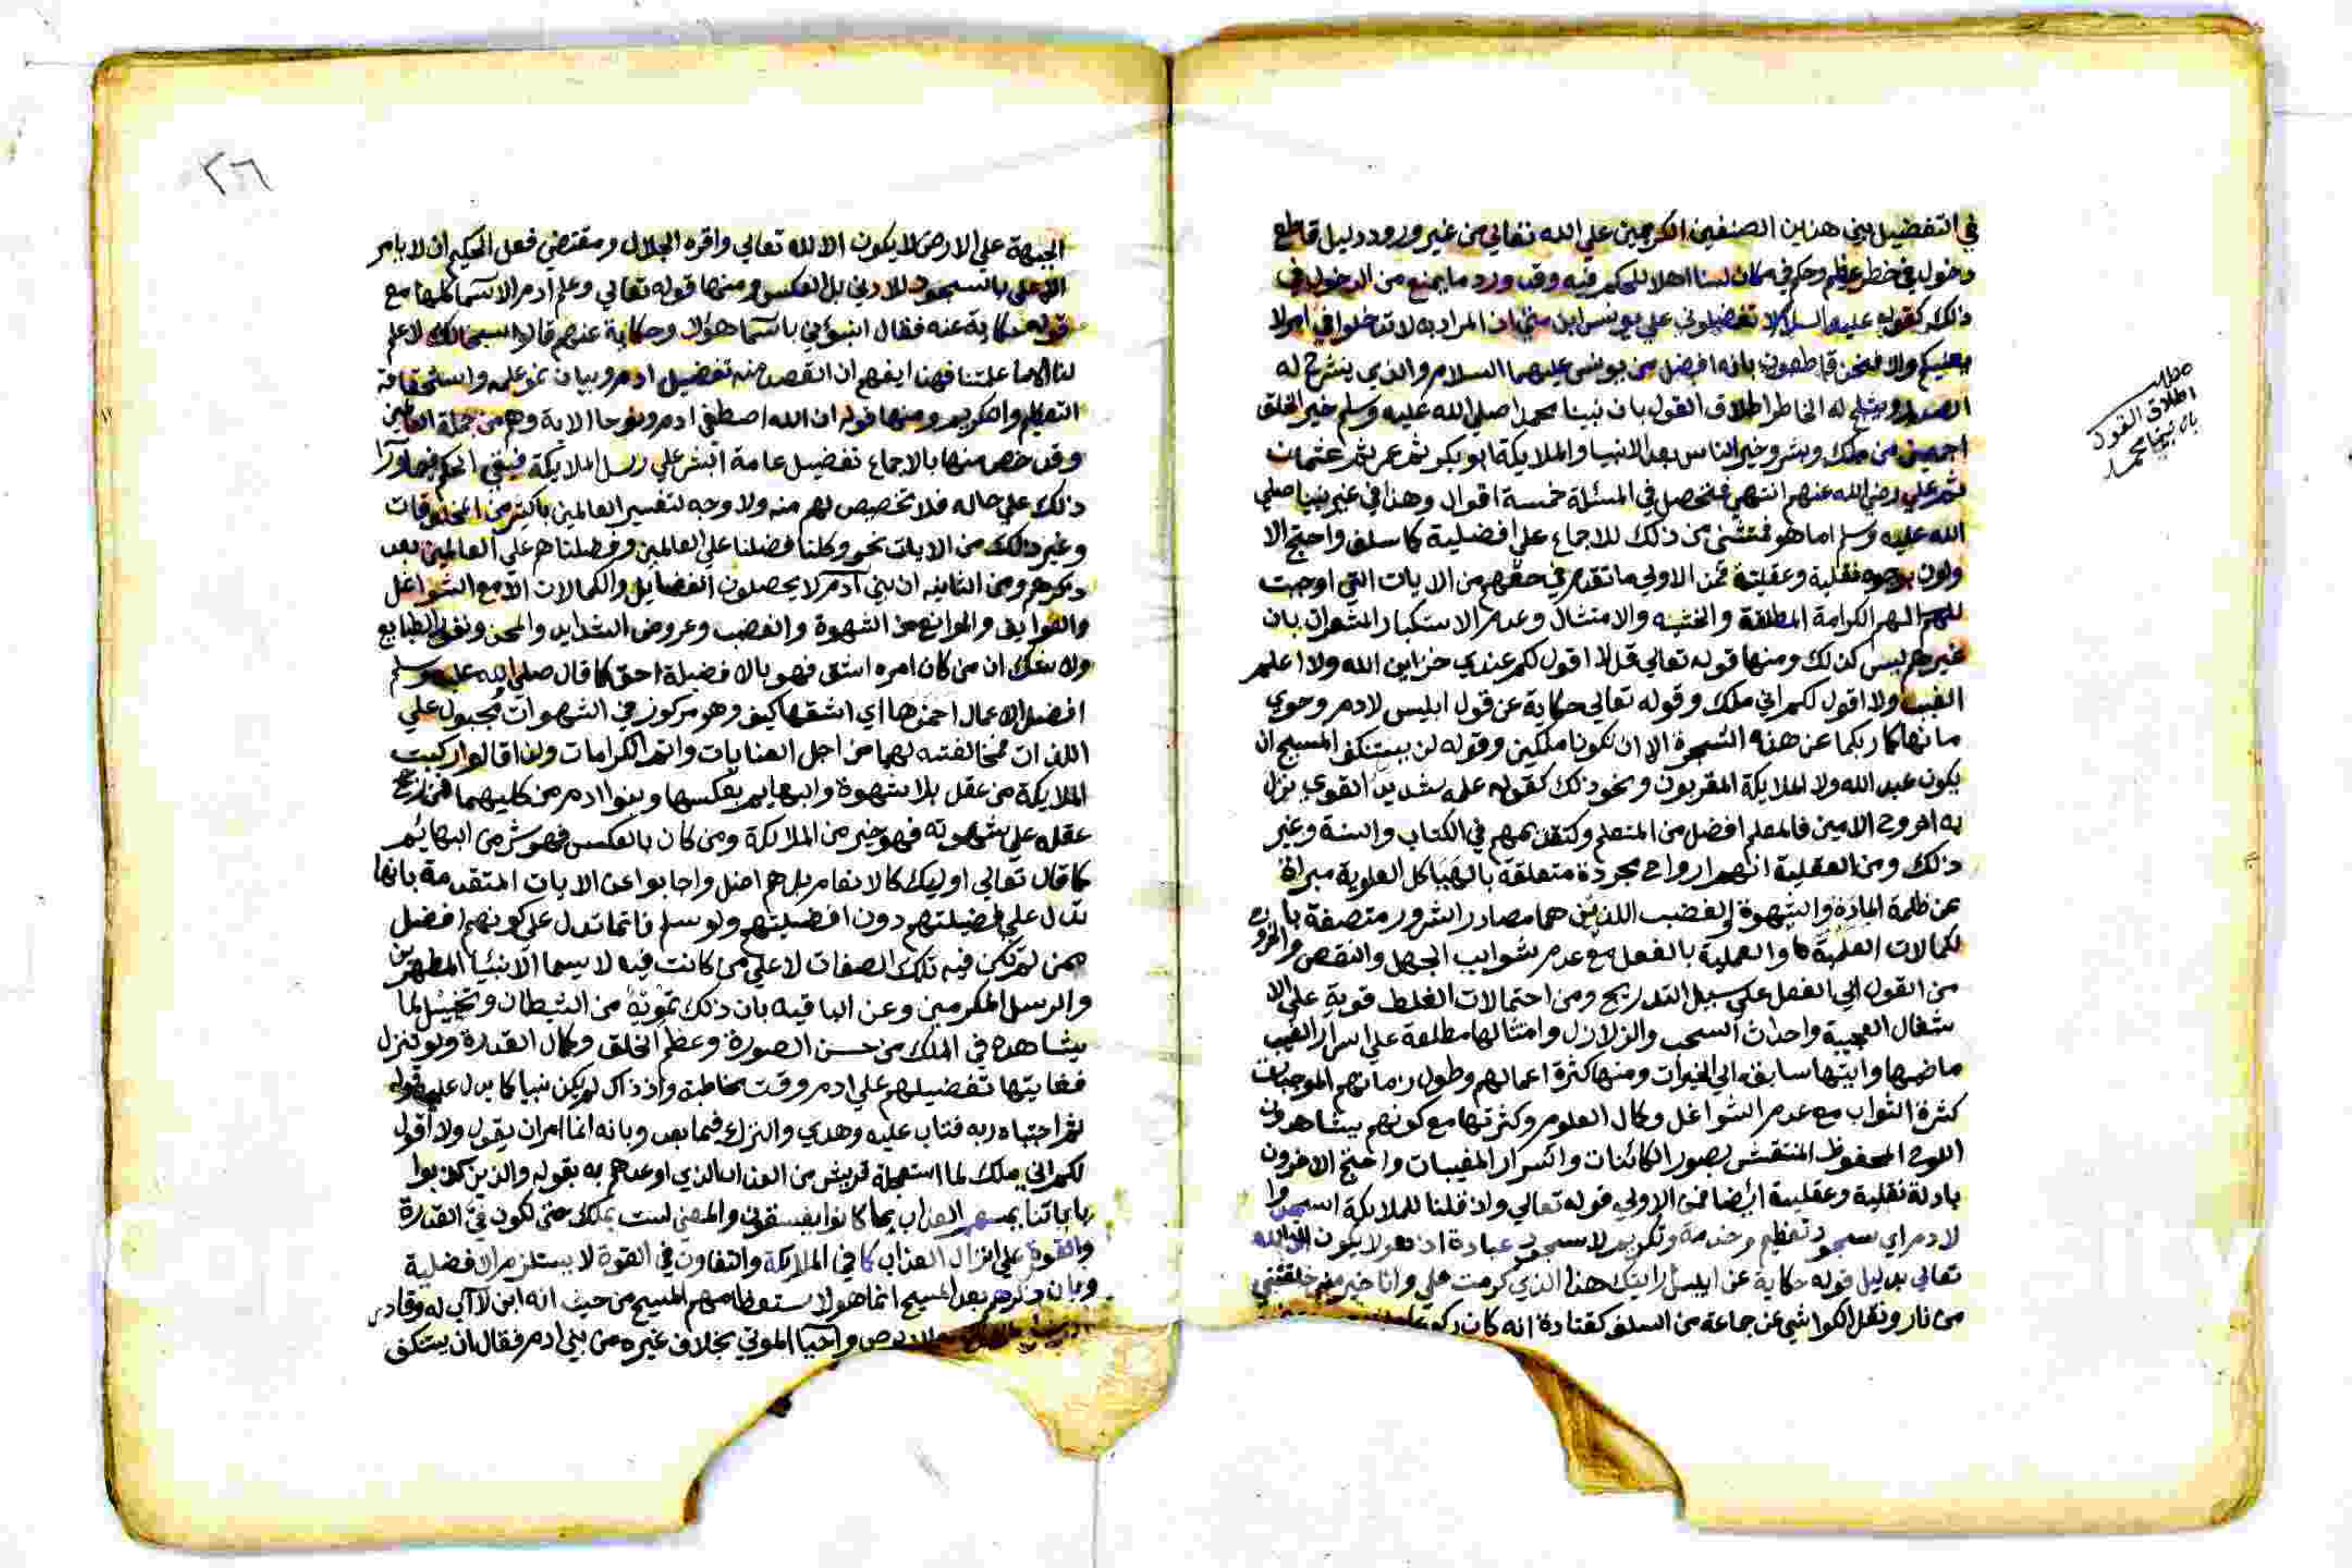 في التفضيل بين هذين الصنفين الكرمين علي الله تعالي من غير ورود دليل قاطع
دخول في خطر عظيم وحكم في مكان لسنا اهلا للحكم فيه وقد ورد ما يمنع من الدخول في
ذلك كقوله عليه السلام لا تفضلوني علي يونس ابن متي اذ المراد به لا تدخلوا في امر لا
يعنيكم والا فنحن قاطعون بانه افضل من يونس عليهما السلام والذي ينشرح له
الصدر ويثلج له الخاطر اطلاق القول بان نبينا محمد اصلي الله عليه وسلم خير الخلق
اجمعين من ملك وبشر وخير الناس بعد الانبيا والملايكة ابو بكر ثم عمر ثم عثمان
ثم علي رضي الله عنهم انتهي فتحصل في المسئلة خمسة اقوال وهذا في غير نبينا صلي
الله عليه وسلم اما هو فمتثني من ذلك للاجماع علي افضلية كما سلف واحتج الا
ولون بوجوه نقلية وعقلية فمن الاولي ما تقدم في حقهم من الايات التي اوجبت
لهم الكرامة المطلقة والخشيه والامتثال وعدم الاستكبار المشعرات بان
غيرهم ليس كذلك ومنها قوله تعالي قل لا اقول لكم عندي خزاين الله ولا اعلم
الغيب ولا اقول لكم اني ملك وقوله تعالي حكاية عن قول ابليس لادم وحوي
ما نهاكما ربكما عن هذه الشجرة الا ان تكونا ملكين وقوله لن يستنكف المسيح ان
يكون عبد الله ولا الملايكة المقربون ونحو ذلك كقوله علمه شديد القوي نزل
به الروح الامين فالمعلم افضل من المتعلم وكتقديمهم في الكتاب والسنة وغير
ذلك ومن العقلية انهم ارواح مجردة متعلقة بالهياكل العلوية مبراة
عن ظلمة المادة والشهوة والغضب اللذين هما مصادر الشرور متصفة با
لكمالات العلمية والعملية بالفعل مع عدم شوايب الجهل والنقص والخروج
من القول الي الفعل علي سبيل التدريج ومن احتمالات الغلط قوية علي الا
شغال العجيبة واحداث السحب والزلازل وامثالها مطلعة علي اسرار الغيب
ماضيها وايتها سابقه الي الخيرات ومنها كثرة اعمالهم وطول زمانهم الموجبات
كثرة الثواب مع عدم الشواغل وكال العلوم وكثرتها مع كونهم يشاهدون
اللوح المحفوظ المنتقش بصور الكائنات واسرار المغيبات واحتج الاخرون
بادلة نقلية وعقلية ايضا فمن الاولي قوله تعالي واذ قلنا للملايكة اسجدوا
لادم اي سجود تعظيم وخدمة وتكريم لا سجود عبادة اذ هو لا يكون الا لله
تعالي بدليل قوله حكاية عن ابليس ارايتك هذا الذي كرمت علي وانا خير منه خلقتني
من نار ونقل الكواشي عن جماعة من السلف كقتادة انه كان
مطلب
اطلاق القول
بان نبينا محمد
٢٦
الجبهة علي الارض لا يكون الا لله تعالي واقره الجلال ومقتضي فعل الحكيم ان لا يامر
الاعلي بالسجود للادني بل العكس ومنها قوله تعالي وعلم ادم الاسما كلها مع
قوله حكاية عنه فقال انبؤني باسما هؤلا وحكاية عنهم قالوا سبحانك لا علم
لنا الا ما علمتنا فهنا يفهم ان القصد منه تفضيل ادم وبيان علمه واستحقاقه
التعظيم والتكريم ومنها قوله ان الله اصطفي ادم ونوحا الاية وهم من جملة العالمين
وقد خص منها بالاجماع تفضيل عامة البشر علي رسل الملايكة فيبقي الحكم فيما ورا
ذلك علي حاله فلا تخصيص لهم منه ولا وجه لتفسير العالمين باكثر من المخلوقات
وغير ذلك من الايات نحو وكلنا فضلنا علي العالمين وفضلناهم علي العالمين بعد
ذكرهم ومن الثانيه ان بني آدم لا يحصلون الفضايل والكمالات الا مع الشواغل
والعوايق والموانع من الشهوة والغضب وعروض الشدايد والمحن
ولا شك ان من كان امره اشق فهو بالافضيلة احق كما قال صلي الله عليه وسلم
افضل الاعمال احمزها اي اشقها كيف وهو مركوز في الشهوات مجبول علي
اللذات فمخالفته لهما من اجل العنايات واتم الكرامات ولذا قالوا ركبت
الملايكة من عقل بلا شهوة والبهايم بعكسها وبنوا ادم من كليهما فمن رجح
عقله علي شهوته فهو خير من الملائكة ومن كان بالعكس فهو شر من البهائم
كما قال تعالي اوليك كالانعام بل هم اضل واجابوا عن الايات المتقدمة بانها
تدل علي فضيلتهم دون افضيلتهم ولو سلم فانما تدل علي كونهم افضل
ممن لم تكن فيه تلك الصفات لا علي من كانت فيه لا سيما الانبيا المطهرين
والرسل المكرمين وعن الباقيه بان ذلك تمويه من الشيطان وتخييل لما
يشاهده في الملك من حسن الصورة وعظم الخلق وكمال القدرة ولو تنزل
فغايتها تفضيلهم علي ادم وقت مخاطبته واذ ذاك لم يكن نبيا كما يدل عليه قوله
ثم اجتباه ربه فتاب عليه وهدي والنزاع فيما بعد وبانه انما امر ان يقول ولا اقول
لكم اني ملك لما استعجلة قريش من العذاب الذي اوعدهم به بقوله والذين كذبوا
باياتنا يمسهم العذاب بما كانوا يفسقون والمعني لست بملك حتي تكون في القدرة
والقوة علي انزال العذاب كما في الملايكة والتفاوت في القوة لا يستلزم الافضلية
وبان ذكرهم بعد المسيح انما هو لاستعظامهم المسيح من حيث انه ابن لا اب له وقادر
والابرص واحيا الموتي بخلاف غيره من بني ادم فقال لن يستنكف